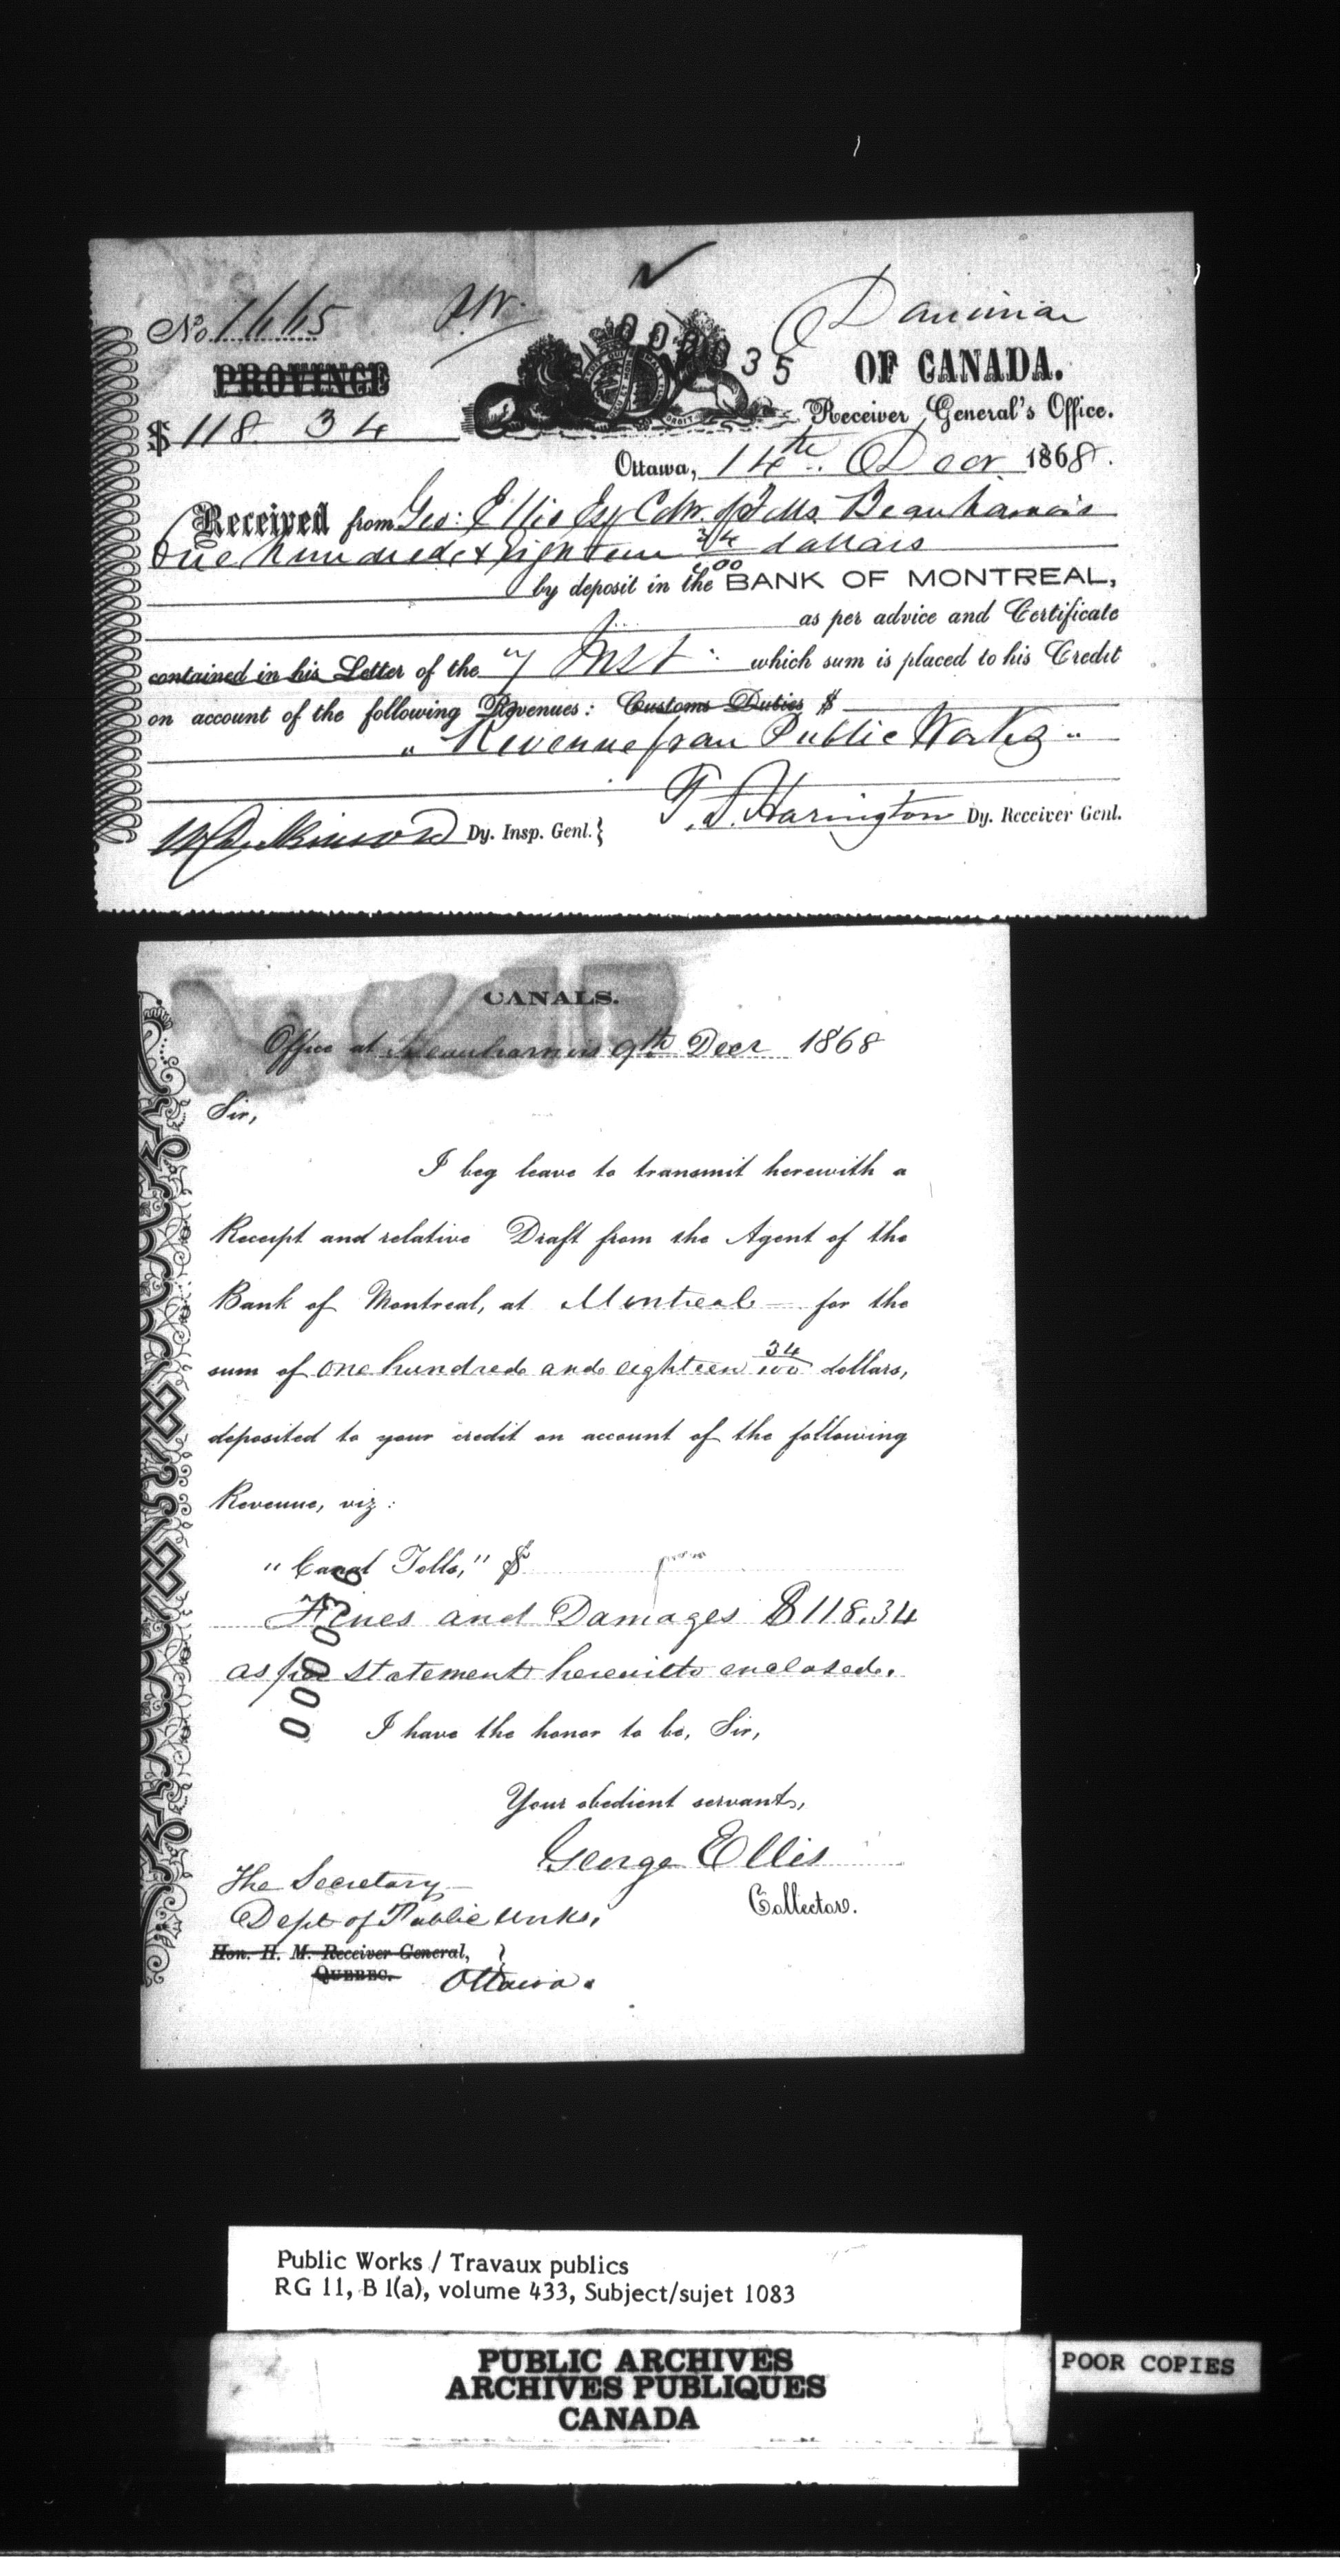 No. 1665 P.W.
Dominion
000035
PROVINCE
OF CANADA.
$ 118 34
Receiver General's Office.
Ottawa, 14th. Decr 1868.
Received from Geo: Ellis Esq Colr. of Tolls Beauharnois
One hundred & Eighteen 34/100 dollars
by deposit in the BANK OF MONTREAL,
as per advice and Certificate
contained in his Letter of the 7 Inst which sum is placed to his Credit
on account of the following Revenues: Customs Duties $
"Revenue from Public Works"
Dy. Insp. Genl.
T. D. Harington Dy. Receiver Genl.
CANALS.
Office at Beauharnois 9th Decr 1868
Sir,
I beg leave to transmit herewith a
Receipt and relative Draft from the Agent of the
Bank of Montreal, at Montreal for the
sum of one hundred and eighteen 34/100 dollars,
deposited to your credit on account of the following
Revenue, viz:
"Canal Tolls," $
Fines and Damages $118.34
as per statement herewith enclosed.
000036
I have the honor to be, Sir,
Your obedient servant,
George Ellis
Collector.
The Secretary
Dept of Public Works,
Hon. H. M. Receiver General,
QUEBEC.
Ottawa.
Public Works / Travaux publics
RG 11, B 1(a), volume 433, Subject/sujet 1083
PUBLIC ARCHIVES
ARCHIVES PUBLIQUES
CANADA
POOR COPIES